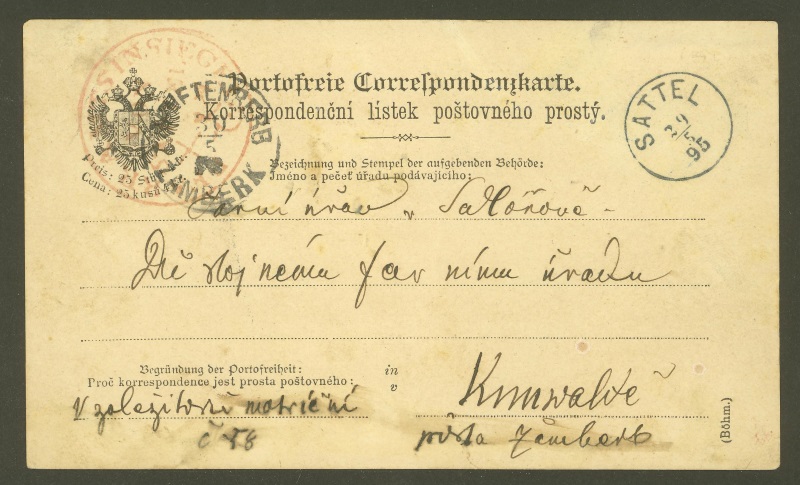 Portofreie Correspondenzkarte.
Korrespondenční listek poštovného prostý.
SATTEL
29/5
95
Bezeichnung und Stempel der aufgebenden Behörde:
Jméno a pečeť úřadu podávajícího:
Preis: 25 Stück
Cena: 25 kusů
ŽAMBERK
Farní úřad v Sedloňově
Důstojnému farnímu úřadu
Begründung der Portofreiheit:
Proč korrespondence jest prosta poštovného:
in
v
Kunwaldě
V záležitosti matriční
č 58
pošta Žamberk
(Böhm.)